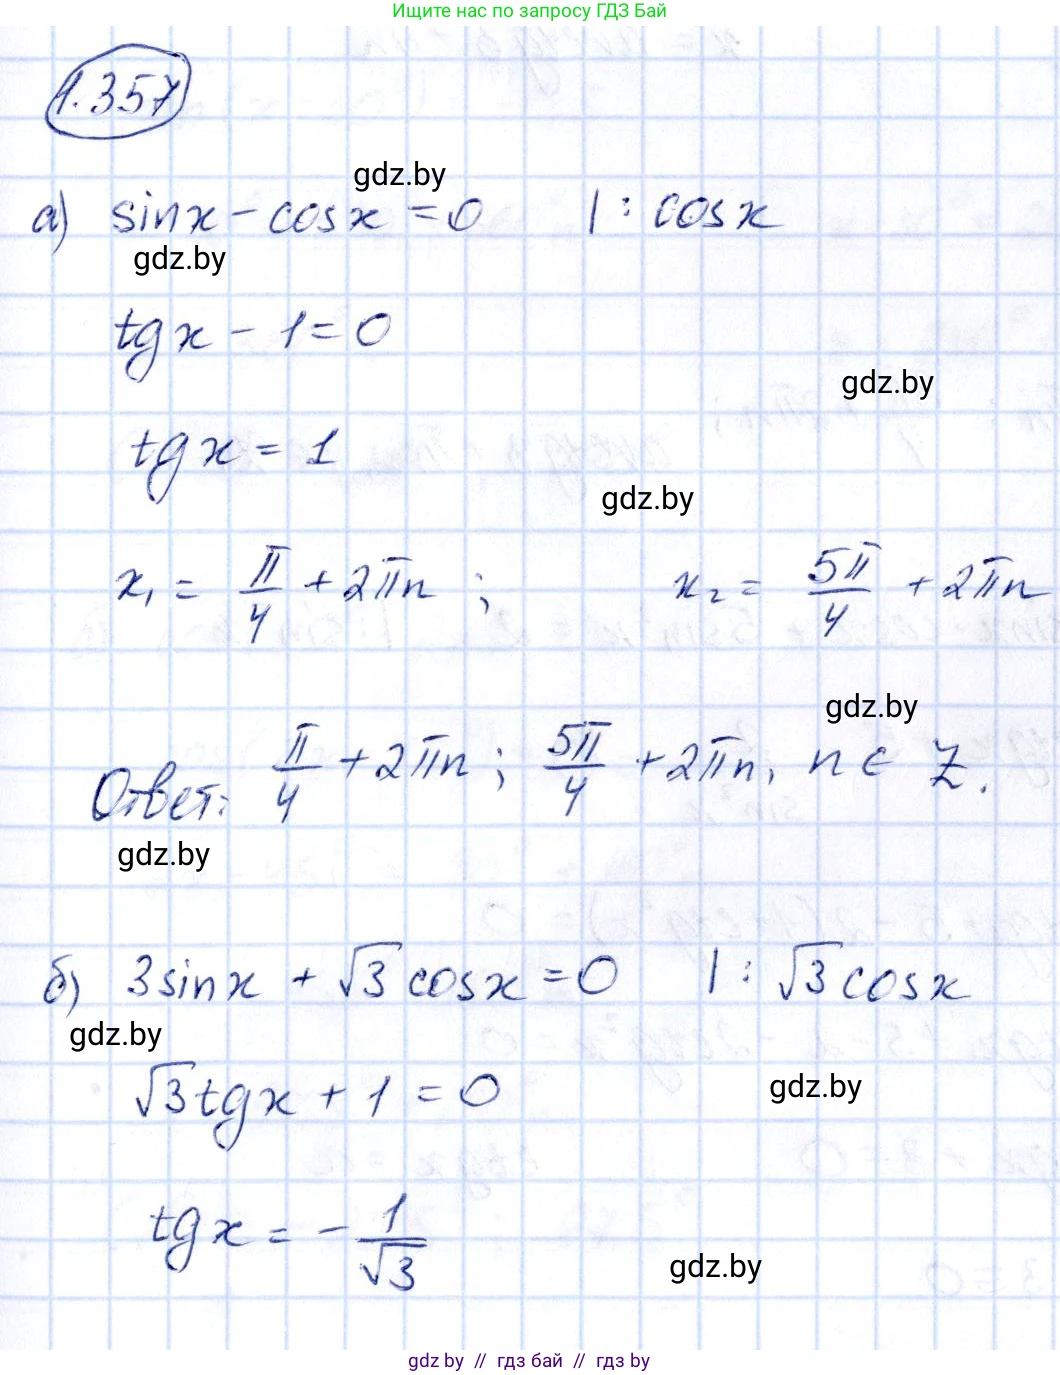 Ищите нас по запросу ГДЗ Бай
1.357
gdz.by
а) sinx - cosx = 0 | : cosx
gdz.by
tgx - 1 = 0
gdz.by
tgx = 1
gdz.by
x₁ = π/4 + 2πn ; x₂ = 5π/4 + 2πn
gdz.by
Ответ: π/4 + 2πn ; 5π/4 + 2πn, n ∈ Z.
gdz.by
б) 3sinx + √3 cosx = 0 | : √3 cosx
gdz.by
√3 tgx + 1 = 0
gdz.by
tgx = - 1/√3
gdz.by
gdz by // гдз бай // гдз by